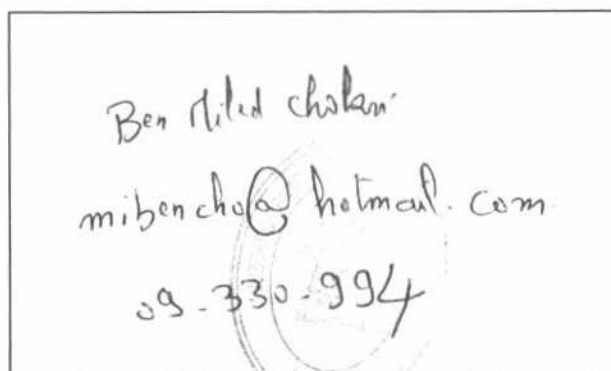 Ben Miled chokri
mibencho@hotmail.com
09-330-994